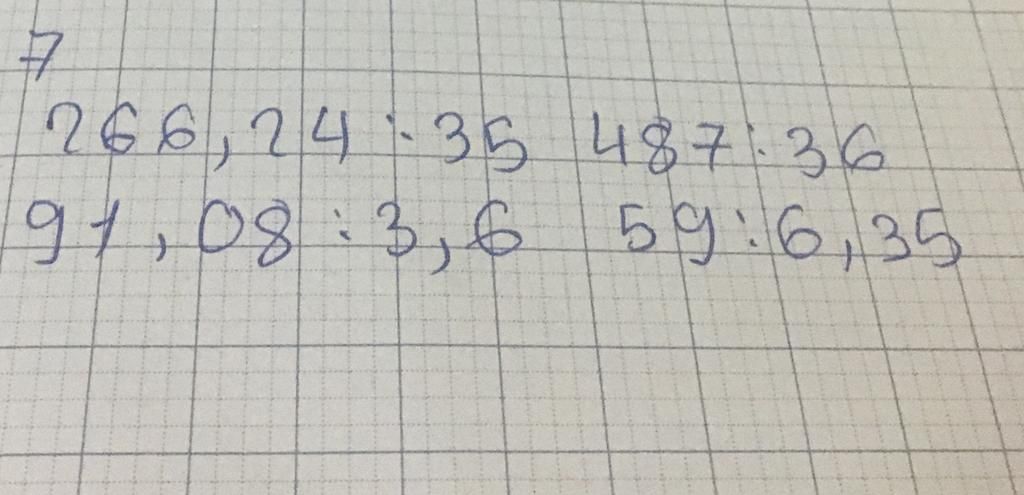 7
266,24 : 35 487 : 36
91,08 : 3,6 59 : 6,35